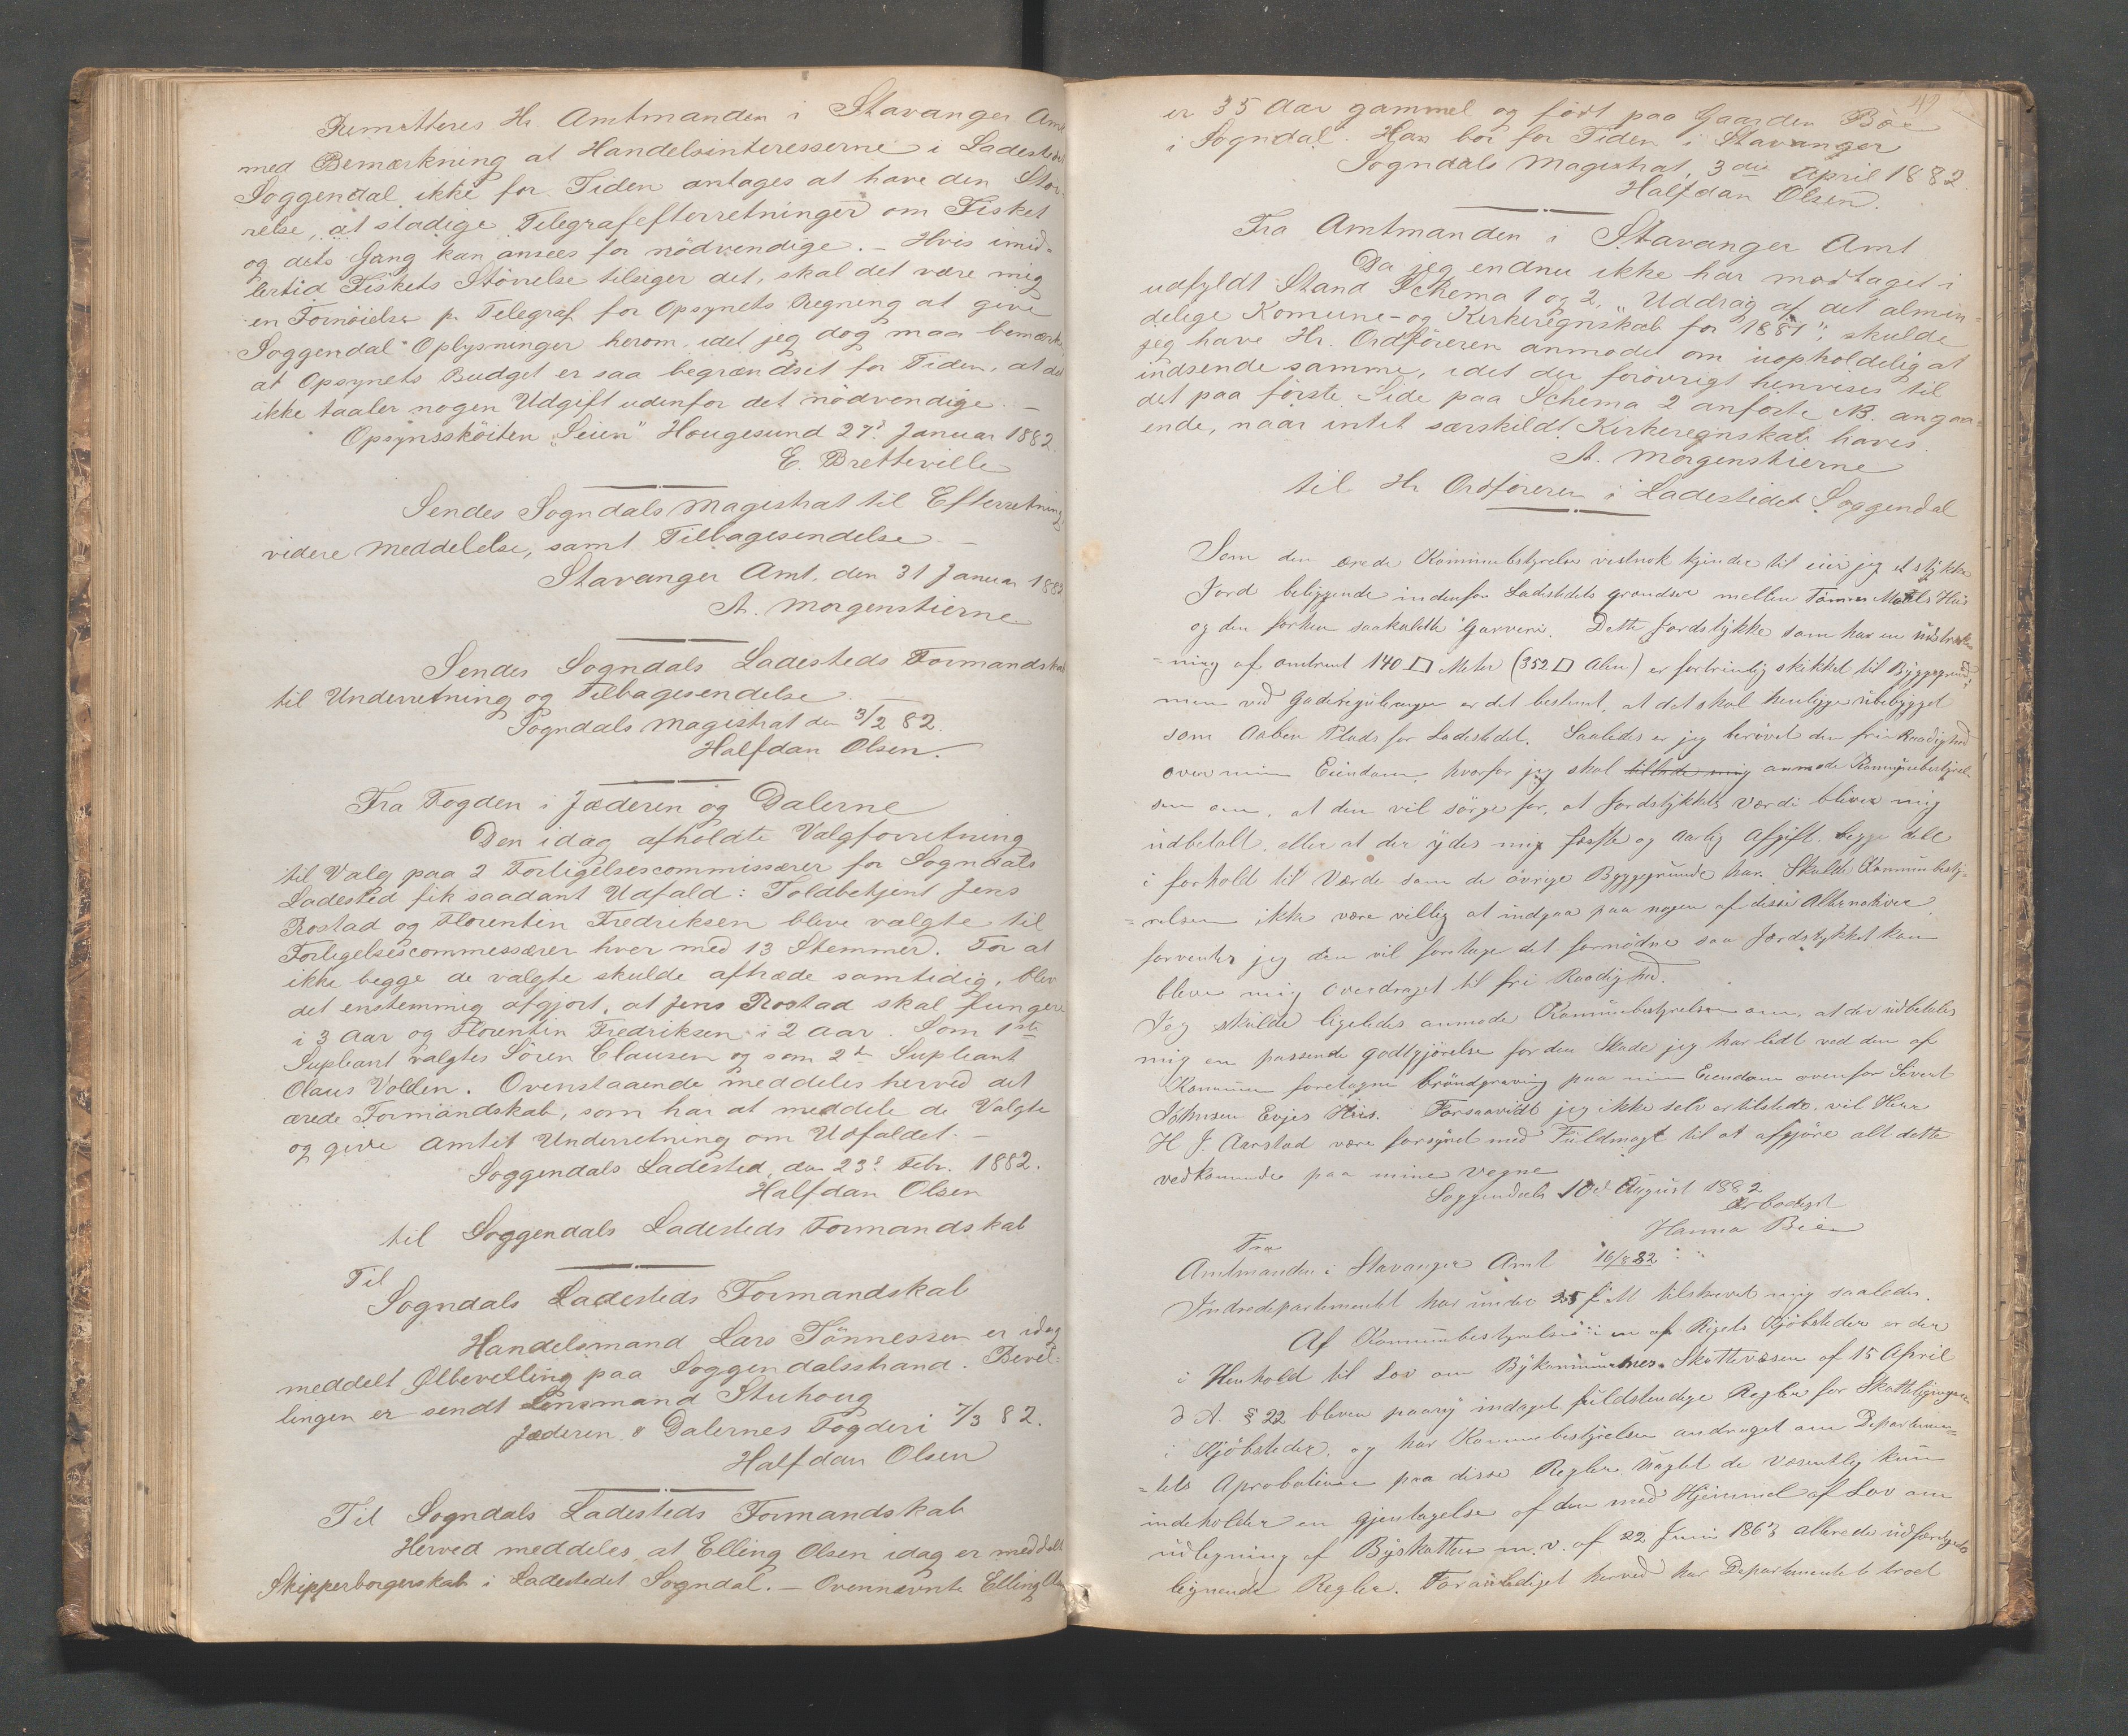 Remitteres Hr Amtmanden i Stavanger Amt
med Bemærkning at Handelsinteresserne i Ladestedet
Soggendal ikke for Tiden antages at have den Stør-
relse, at stadige Telegrafefterretninger om Fisket
og dets Gang kan ansees for nödvendige. – Hvis imid=
lertid Fiskets Störrelse tilsiger det, skal det være mig
en Fornöielse pr. Telegraf for Opsynets Regning at give
Soggendal Oplysninger herom, idet jeg dog maa bemærke
at Opsynets Budget er saa begrændset for Tiden, at det
ikke taaler nogen Udgift udenfor det nödvendige. –
Opsynssköiten "Seien" Hougesund 27d Januar 1882.
E. Bretteville
Sendes Sogndals Magistrat til Efterretning,
videre Meddelelse, samt Tilbagesendelse –
Stavanger Amt, den 31 Januar 1882
A. Morgenstierne
Sendes Sogndals Ladesteds Formandskab
til Underretning og Tilbagesendelse.
Sogndals Magistrat den 3/2 82.
Halfdan Olsen.
Fra Fogden i Jæderen og Dalerne
Den idag afholdte Valgforretning
til Valg paa 2 Forligelsescommissærer for Sogndals
Ladested fik saadant Udfald: Toldbetjent Jens
Rostad og Florentin Fredriksen bleve valgte til
Forligelsescommessærer hver med 13 Stemmer. For at
ikke begge de valgte skulde aftræde samtidig, blev
det enstemmig afgjort, at Jens Rostad skal fungere
i 3 Aar og Florentin Fredriksen i 2 Aar. Som 1ste
Supleant valgtes Sören Clausen og som 2d Supleant
Olaus Volden. Ovenstaaende meddeles herved det
ærede Formandskab, som har at meddele de Valgte
og give Amtet Underretning om Udfaldet. –
Soggendals Ladested, den 23d Febr. 1882.
Halfdan Olsen
til Soggendals Ladesteds Formandskab
Til
Sogndals Ladesteds Formandskab
Handelsmand Lars Tönnessen er idag
meddelt Ølbevelling paa Soggendalsstrand. Bevil=
lingen er sendt Lensmand Stuhoug
Jæderen & Dalernes Fogderi 7/3 82.
Halfdan Olsen
Til Sogndals Ladesteds Formandskab
Herved meddeles at Elling Olsen idag er meddelt
Skipperborgerskab i Ladestedet Sogndal. – Ovennævnte Elling Olsen
49
er 35 Aar gammel og födt paa Gaarden Böe
i Sogndal. Han bor for Tiden i Stavanger
Sogndals Magistrat, 3die April 1882.
Halfdan Olsen.
Fra Amtmanden i Stavanger Amt
Da jeg endnu ikke har modtaget i
udfyldt Stand Schema 1 og 2, "Uddrag af det almin=
delige Komune- og Kirkeregnskab for 1881", skulde
jeg have Hr. Ordföreren anmodet om uopholdelig at
indsende samme, idet der forövrigt henvises til
det paa förste Side paa Schema 2 anförte NB. angaa=
ende, naar intet særskildt Kirkeregnskab haves
A. Morgenstierne
til Hr Ordföreren i Ladestedet Soggendal
Som den ærede Kommunebestyrelse vistnok kjender til eier jeg et stykke
Jord beliggende indenfor Ladestedets grændser mellem Tönnes Mæls Hus
og den forhen saakaldte Garveri. Dette Jordstykke som har en udstræk
=ning af omtrent 140 □ Meter (352 □ Alen) er fortrinlig skikket til Byggegrund,
men ved Gadereguleringen er det bestemt, at det skal henligge ubebygget
som Aaben Plads for Ladestedet. Saaledes er jeg berövet den frie Raadighed
over min Eiendom, hvorfor jeg skal tillade mig anmode Kommunebestyrel-
sen om, at den vil sörge for, at Jordstykkets Værdi bliver mig
udbetalt, eller at der ydes mig fæste og aarlig Afgift, begge dele
i forhold til Værde som de övrige Byggegrunde har. Skulde Kommunebesty-
=relsen ikke være villig at indgaa paa nogen af disse Alternativer
forventer jeg den vil foretage det fornödne saa Jordstykket kan
blive mig overdraget til fri Raadighed.
Jeg skulde ligeledes anmode Kommunebestyrelsen om, at der udbetales
mig en passende godtgjörelse for den Skade jeg har lidt ved den af
Kommunen foretagne bröndgraving paa min Eiendom ovenfor Sivert
Johnsen Evjes Hus. Forsaavidt jeg ikke selv er tilstede, vil Herr
H J. Aarstad være forsynet med Fuldmagt til at afgjöre alt dette
vedkommende paa mine Vegne
Soggendal 10d August 1882
Ærbödigst
Hanna Bie
Fra
Amtmanden i Stavanger Amt 16/8 82
Indredepartementet har under 35 f. Mt. tilskrevet mig saaledes.
Af Kommunebestyrelsen i en af Rigets Kjöbsteder er der
i Henhold til Lov om Bykommunernes Skattevæsen af 15 April
d A. § 22 bleven paany indtaget fuldstendige Regler for Skatteligningen
i Kjöbsteder, og har Kommunebestyrelsen andraget om Departemen=
=tets Aprobation paa disse Regler, uagtet de væsentlig kun
indeholder en gjentagelse af den med Hjemmel af Lov om
udligning af Byskatten m. v. af 22 Juni 1863 allerede udfærdigede
lignende Regler. Foranlediget herved har Departementet troet